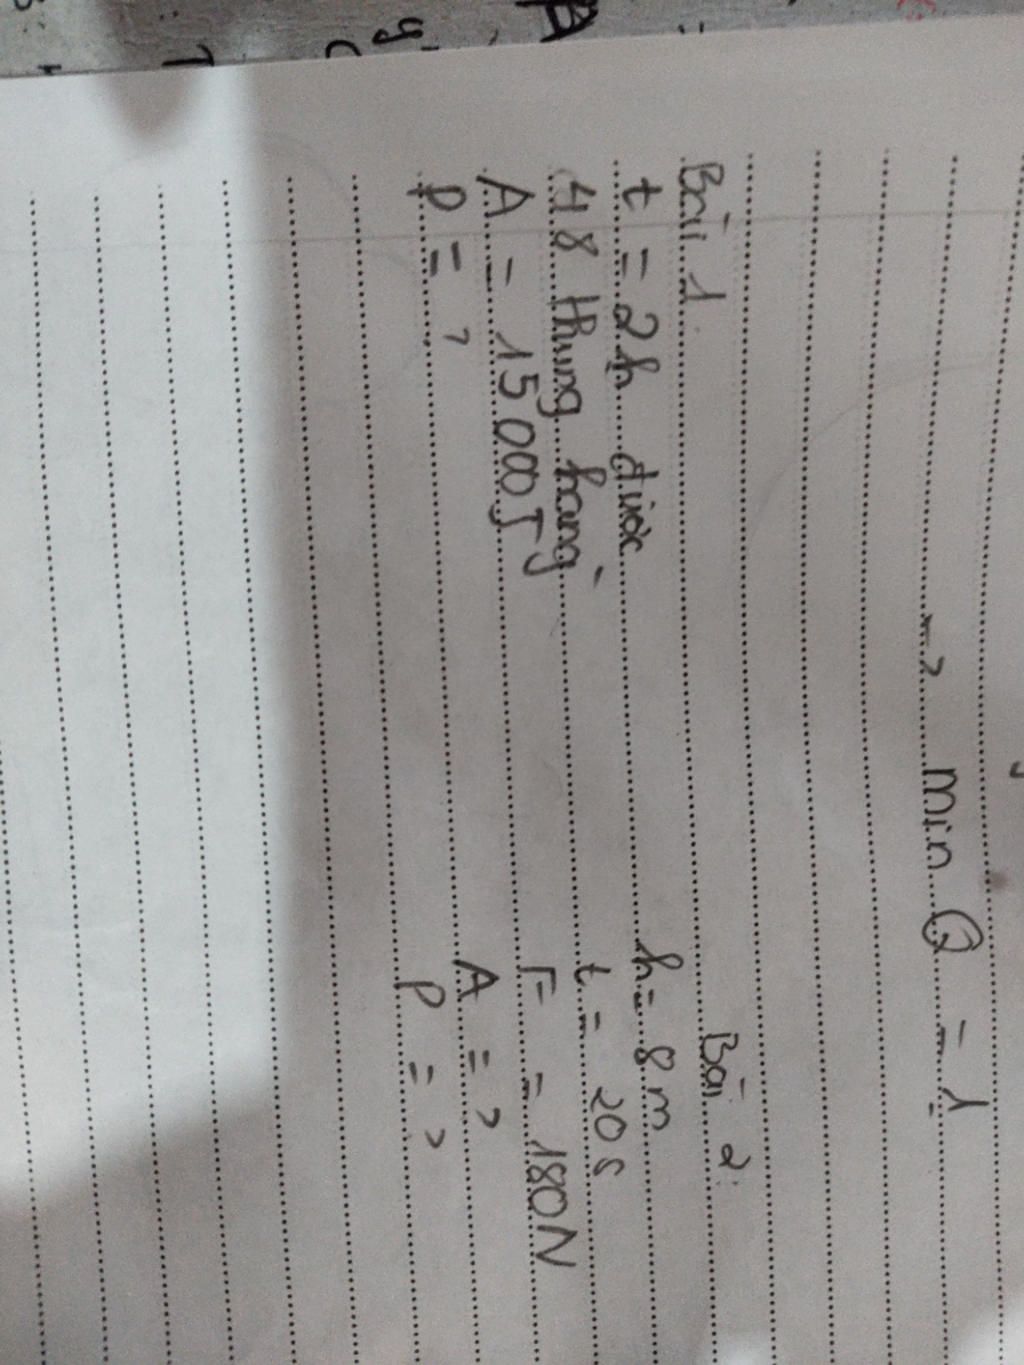 → min Q =
Bài 1
t = 2h được
48 thùng hàng
A = 15000J
P = ?
Bài 2
h = 8m
t = 20s
F = 180N
A = ?
P = ?